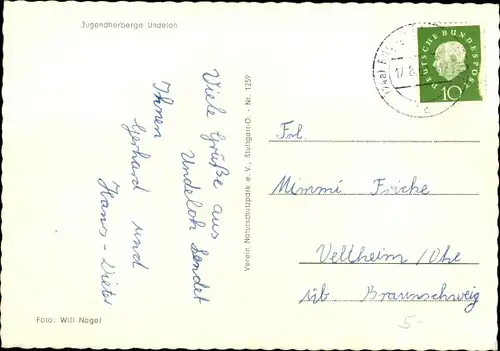 Jugendherberge Undeloh
Viele Grüße aus
Undeloh sendet
Ihnen
Gerhard und
Hans-Dieter
Foto: Will Nagel
Verein Naturschutzpark e. V., Stuttgart-O · Nr. 1259
DEUTSCHE BUNDESPOST
10
17.8.
c
Frl.
Mimmi Fricke
Veltheim/Ohe
üb Braunschweig
5-